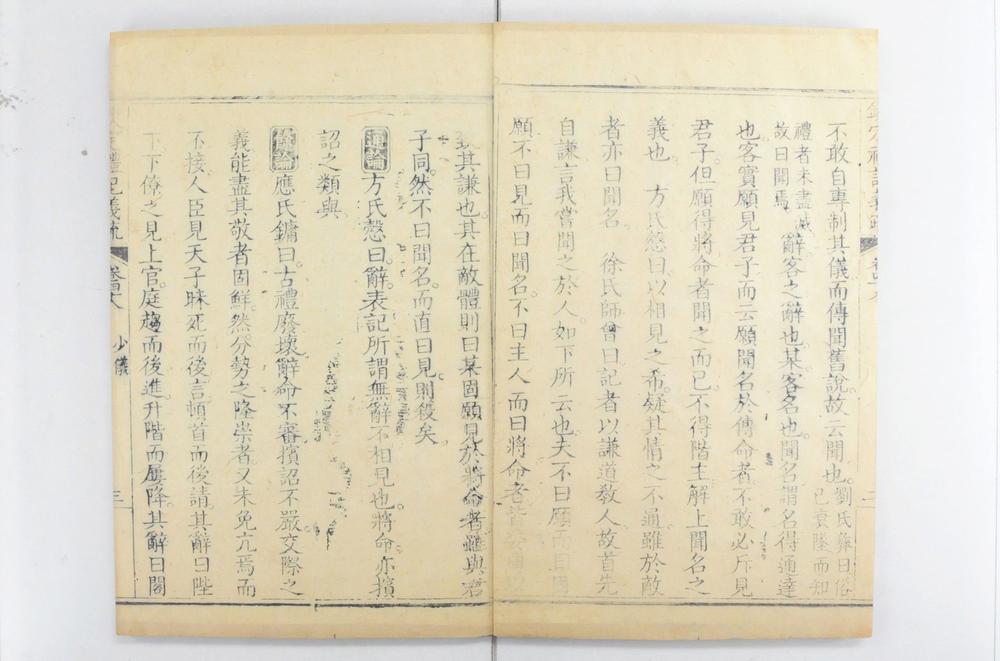 不敢自專制其儀而傳聞舊說故云聞也劉氏彝曰俗已衰墜而知
禮者未盡滅故曰聞焉辭客之辭也某客名也聞名謂名得通達
也客實願見君子而云願聞名於傳命者不敢必斥見
君子但願得將命者聞之而已不得階主解上聞名之
義也 方氏慤曰以相見之希疑其情之不通雖於敵
者亦曰聞名 徐氏師曾曰記者以謙道教人故首先
自謙言我嘗聞之於人如下所云也夫不曰願而曰固
願不曰見而曰聞名不曰主人而曰將命者皆
其謙也其在敵體則曰某固願見於將命者雖與君
子同然不曰聞名而直曰見則殺矣
通論方氏慤曰辭表記所謂無辭不相見也將命亦擯
詔之類與
餘論應氏鏞曰古禮廢壞辭命不審擯詔不嚴交際之
義能盡其敬者固鮮然分勢之隆崇者又未免亢焉而
不接人臣見天子昧死而後言頓首而後請其辭曰陛
下下僚之見上官庭趨而後進升階而屢降其辭曰閣
禮記義疏 少儀 三